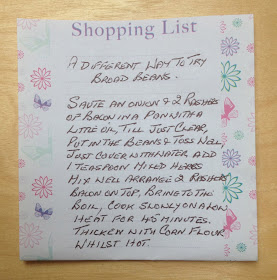 Shopping List
A DIFFERENT WAY TO TRY
BROAD BEANS.
SAUTE AN ONION & 2 RASHERS
OF BACON IN A PAN WITH A
LITTLE OIL, TILL JUST CLEAR,
PUT IN THE BEANS & TOSS WELL,
JUST COVER WITH WATER ADD
1 TEASPOON MIXED HERBS
MIX WELL ARRANGE 2 RASHERS
BACON ON TOP, BRING TO THE
BOIL, COOK SLOWLY ON A LOW
HEAT FOR 45 MINUTES.
THICKEN WITH CORN FLOUR
WHILST HOT.